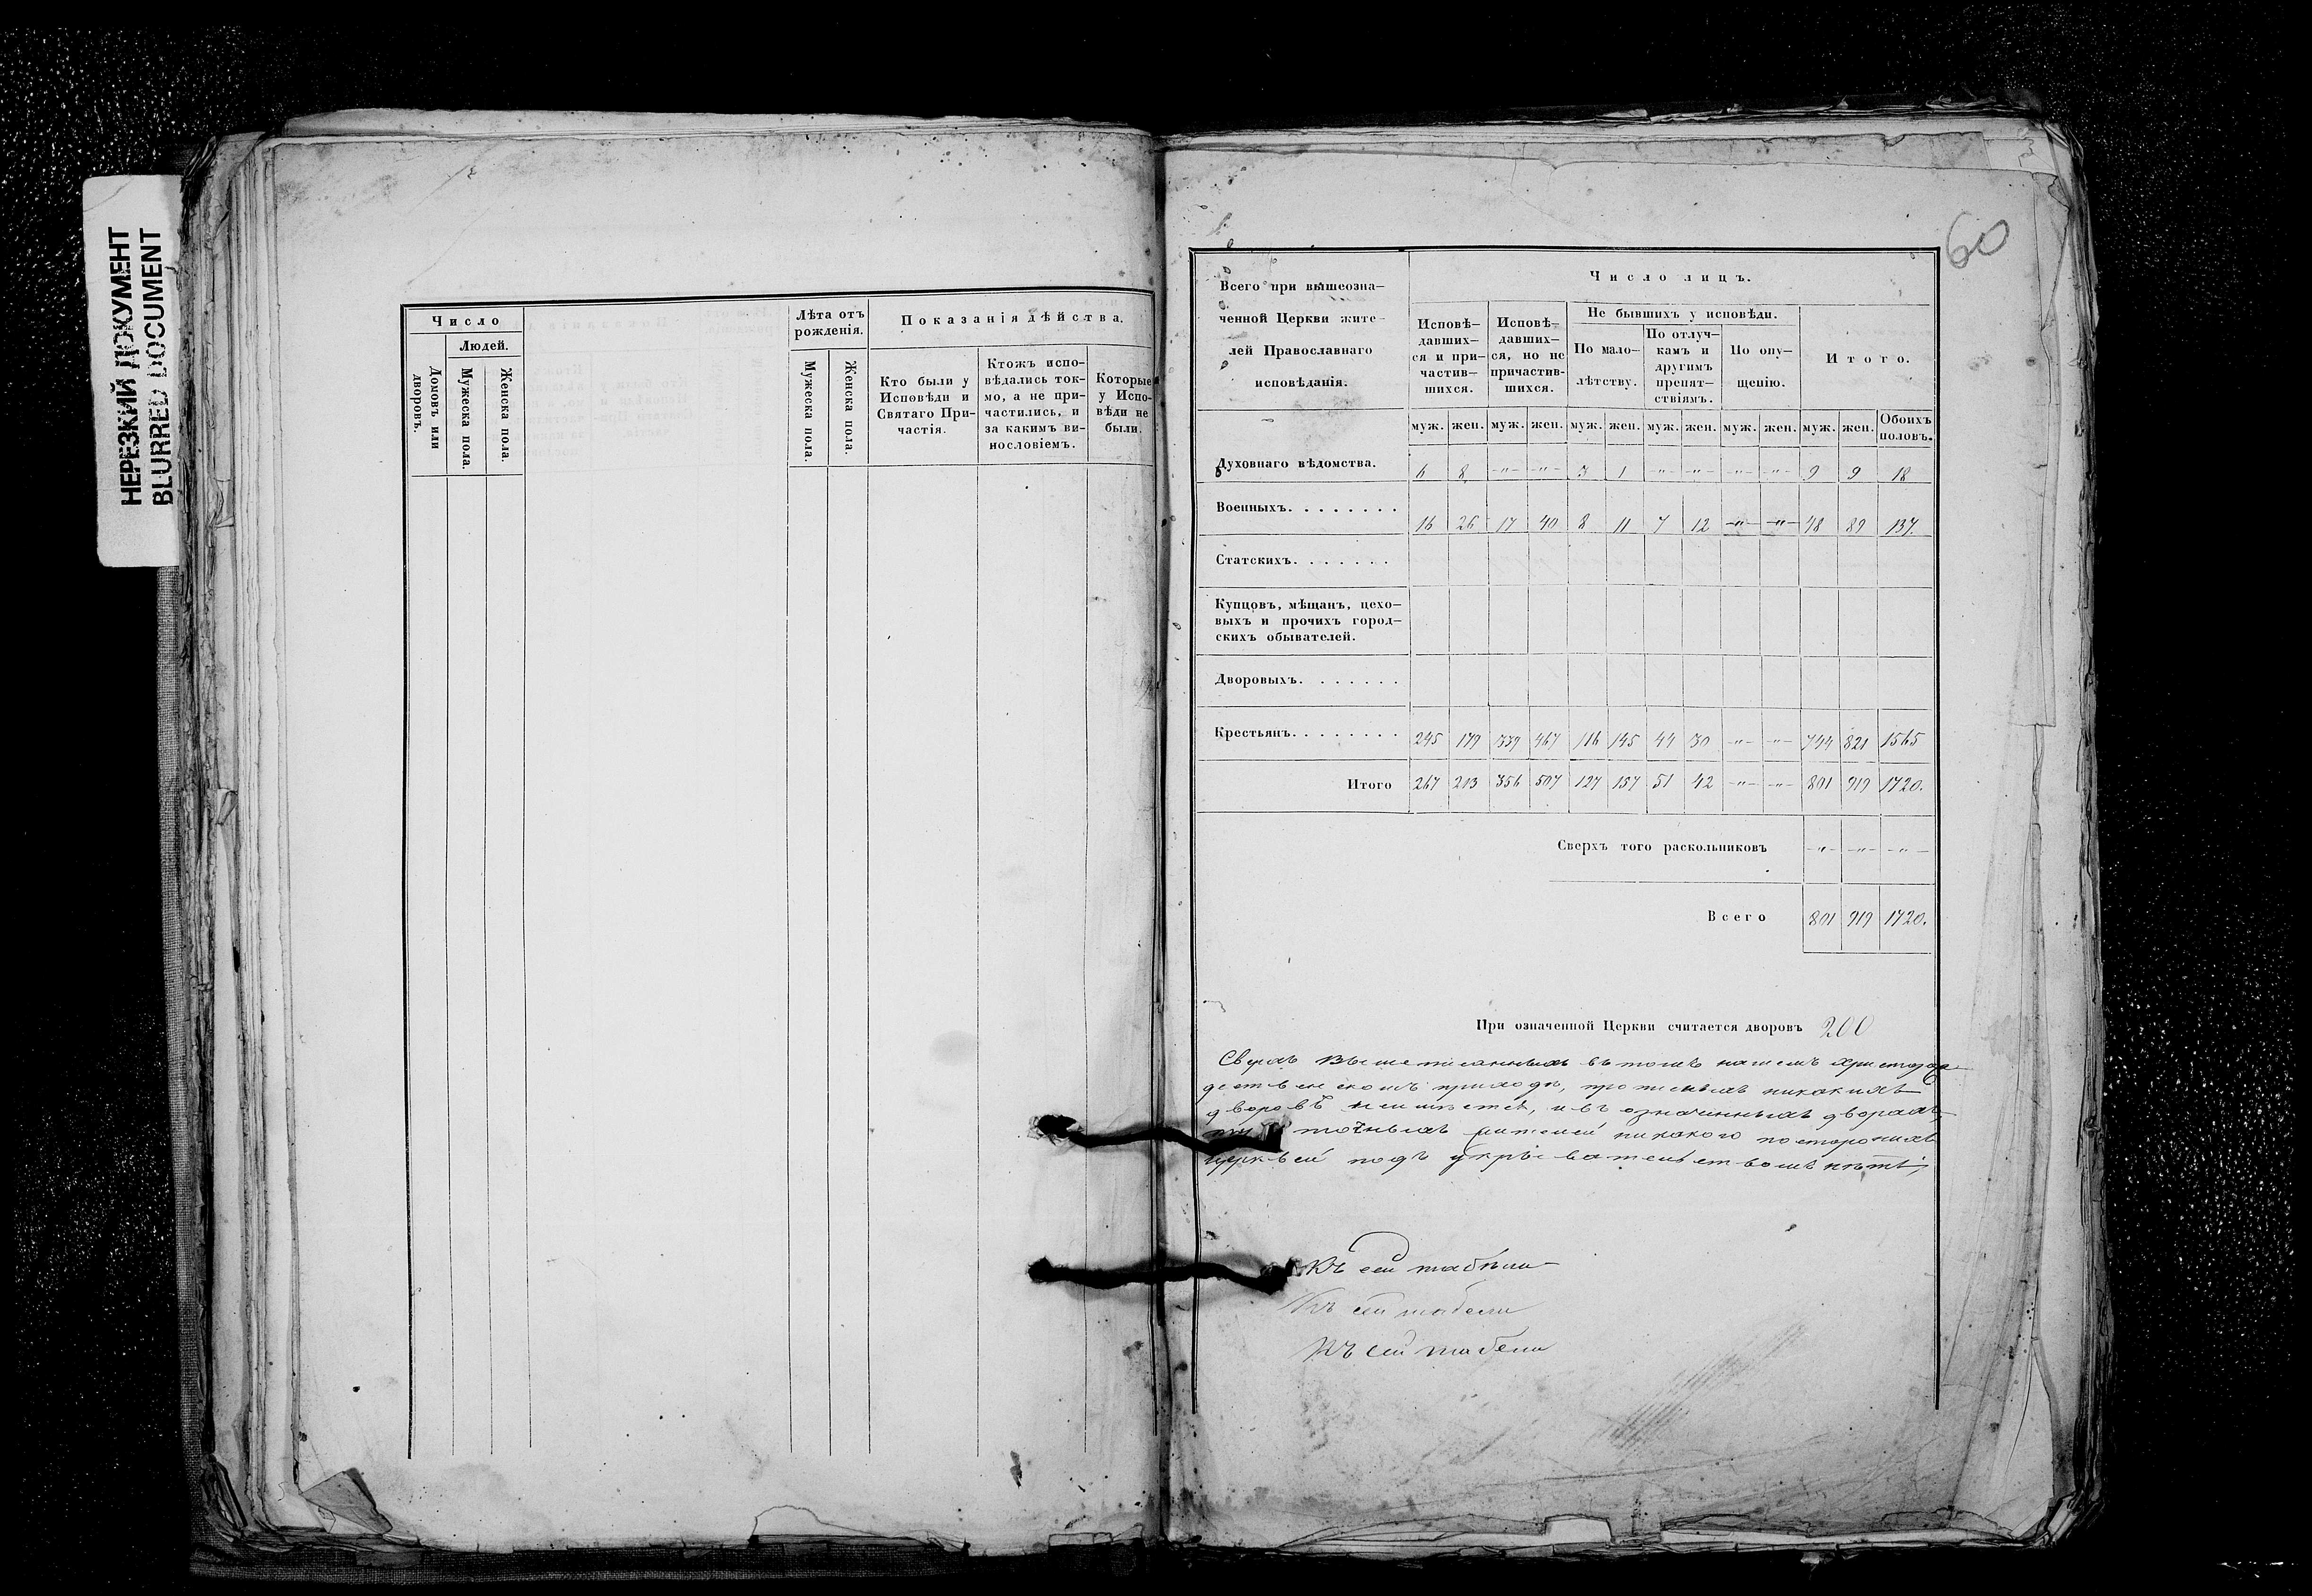 НЕРЕЗКИЙ ДОКУМЕНТ
BLURRED DOCUMENT
Число
Людей.
Домовъ или дворовъ.
Мужеска пола.
Женска пола.
Лѣта отъ рожденія.
Мужеска пола.
Женска пола.
Показанія дѣйства.
Кто были у Исповѣди и Святаго При-
частія.
Ктожъ испо-
вѣдались ток-
мо, а не при-
частились, и
за какимъ ви-
нословіемъ.
Которые
у Испо-
вѣди не
были.
60
Всего при вышеозна-
ченной Церкви жите-
лей Православнаго
исповѣданія.
Число лицъ.
Исповѣ-
давших-
ся и при-
частив-
шихся.
Исповѣ-
давших-
ся, но не
причастив-
шихся.
Не бывшихъ у исповѣди.
По мало-
лѣтству.
По отлуч-
камъ и
другимъ
препят-
ствіямъ.
По опу-
щенію.
Итого.
муж. жен. муж. жен. муж. жен. муж. жен. муж. жен. муж. жен. Обоихъ половъ.
Духовнаго вѣдомства. 6 8 -"- -"- 3 1 -"- -"- -"- -"- 9 9 18
Военныхъ. . . . . . . . 16 26 17 40 8 11 7 12 -"- -"- 48 89 137.
Статскихъ. . . . . . .
Купцовъ, мѣщанъ, цехо-
выхъ и прочихъ город-
скихъ обывателей.
Дворовыхъ. . . . . . .
Крестьянъ. . . . . . . . 245 179 339 467 116 145 44 30 -"- -"- 744 821 1565
Итого 267 213 356 507 127 157 51 42 -"- -"- 801 919 1720.
Сверхъ того раскольниковъ -"- -"- -"-
Всего 801 919 1720.
При означенной Церкви считается дворовъ 200
Сверхъ вышеписанныхъ въ томъ нашемъ Христорож
дественскомъ приходѣ, прописныхъ никакихъ
дворовъ неимѣется, и въ означенныхъ дворахъ
жителей никакого постороннихъ
церквей подъ укрывательствомъ нѣтъ;
Къ сей табели
Къ сей табели
Къ сей табели